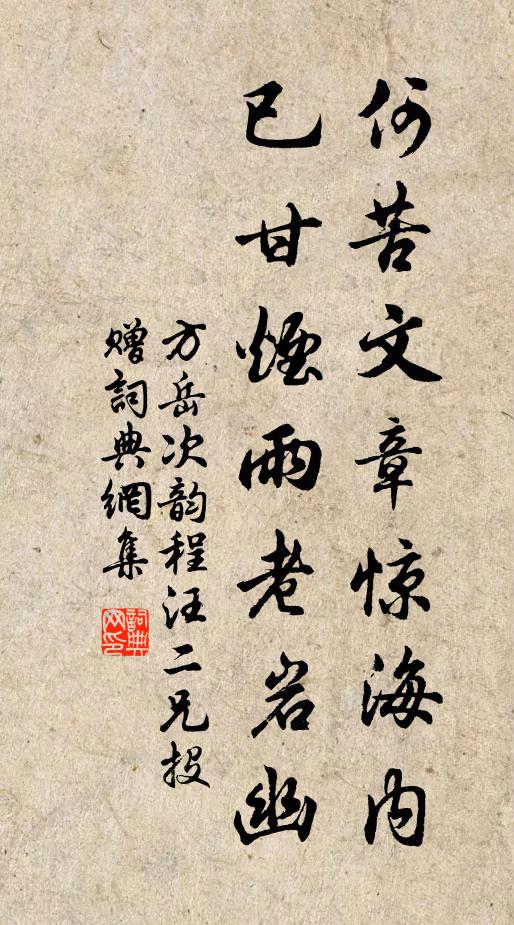 何苦文章惊海内
已甘煙雨老岩幽
方岳次韵程汪二兄投
赠詞典網集
詞典
网印